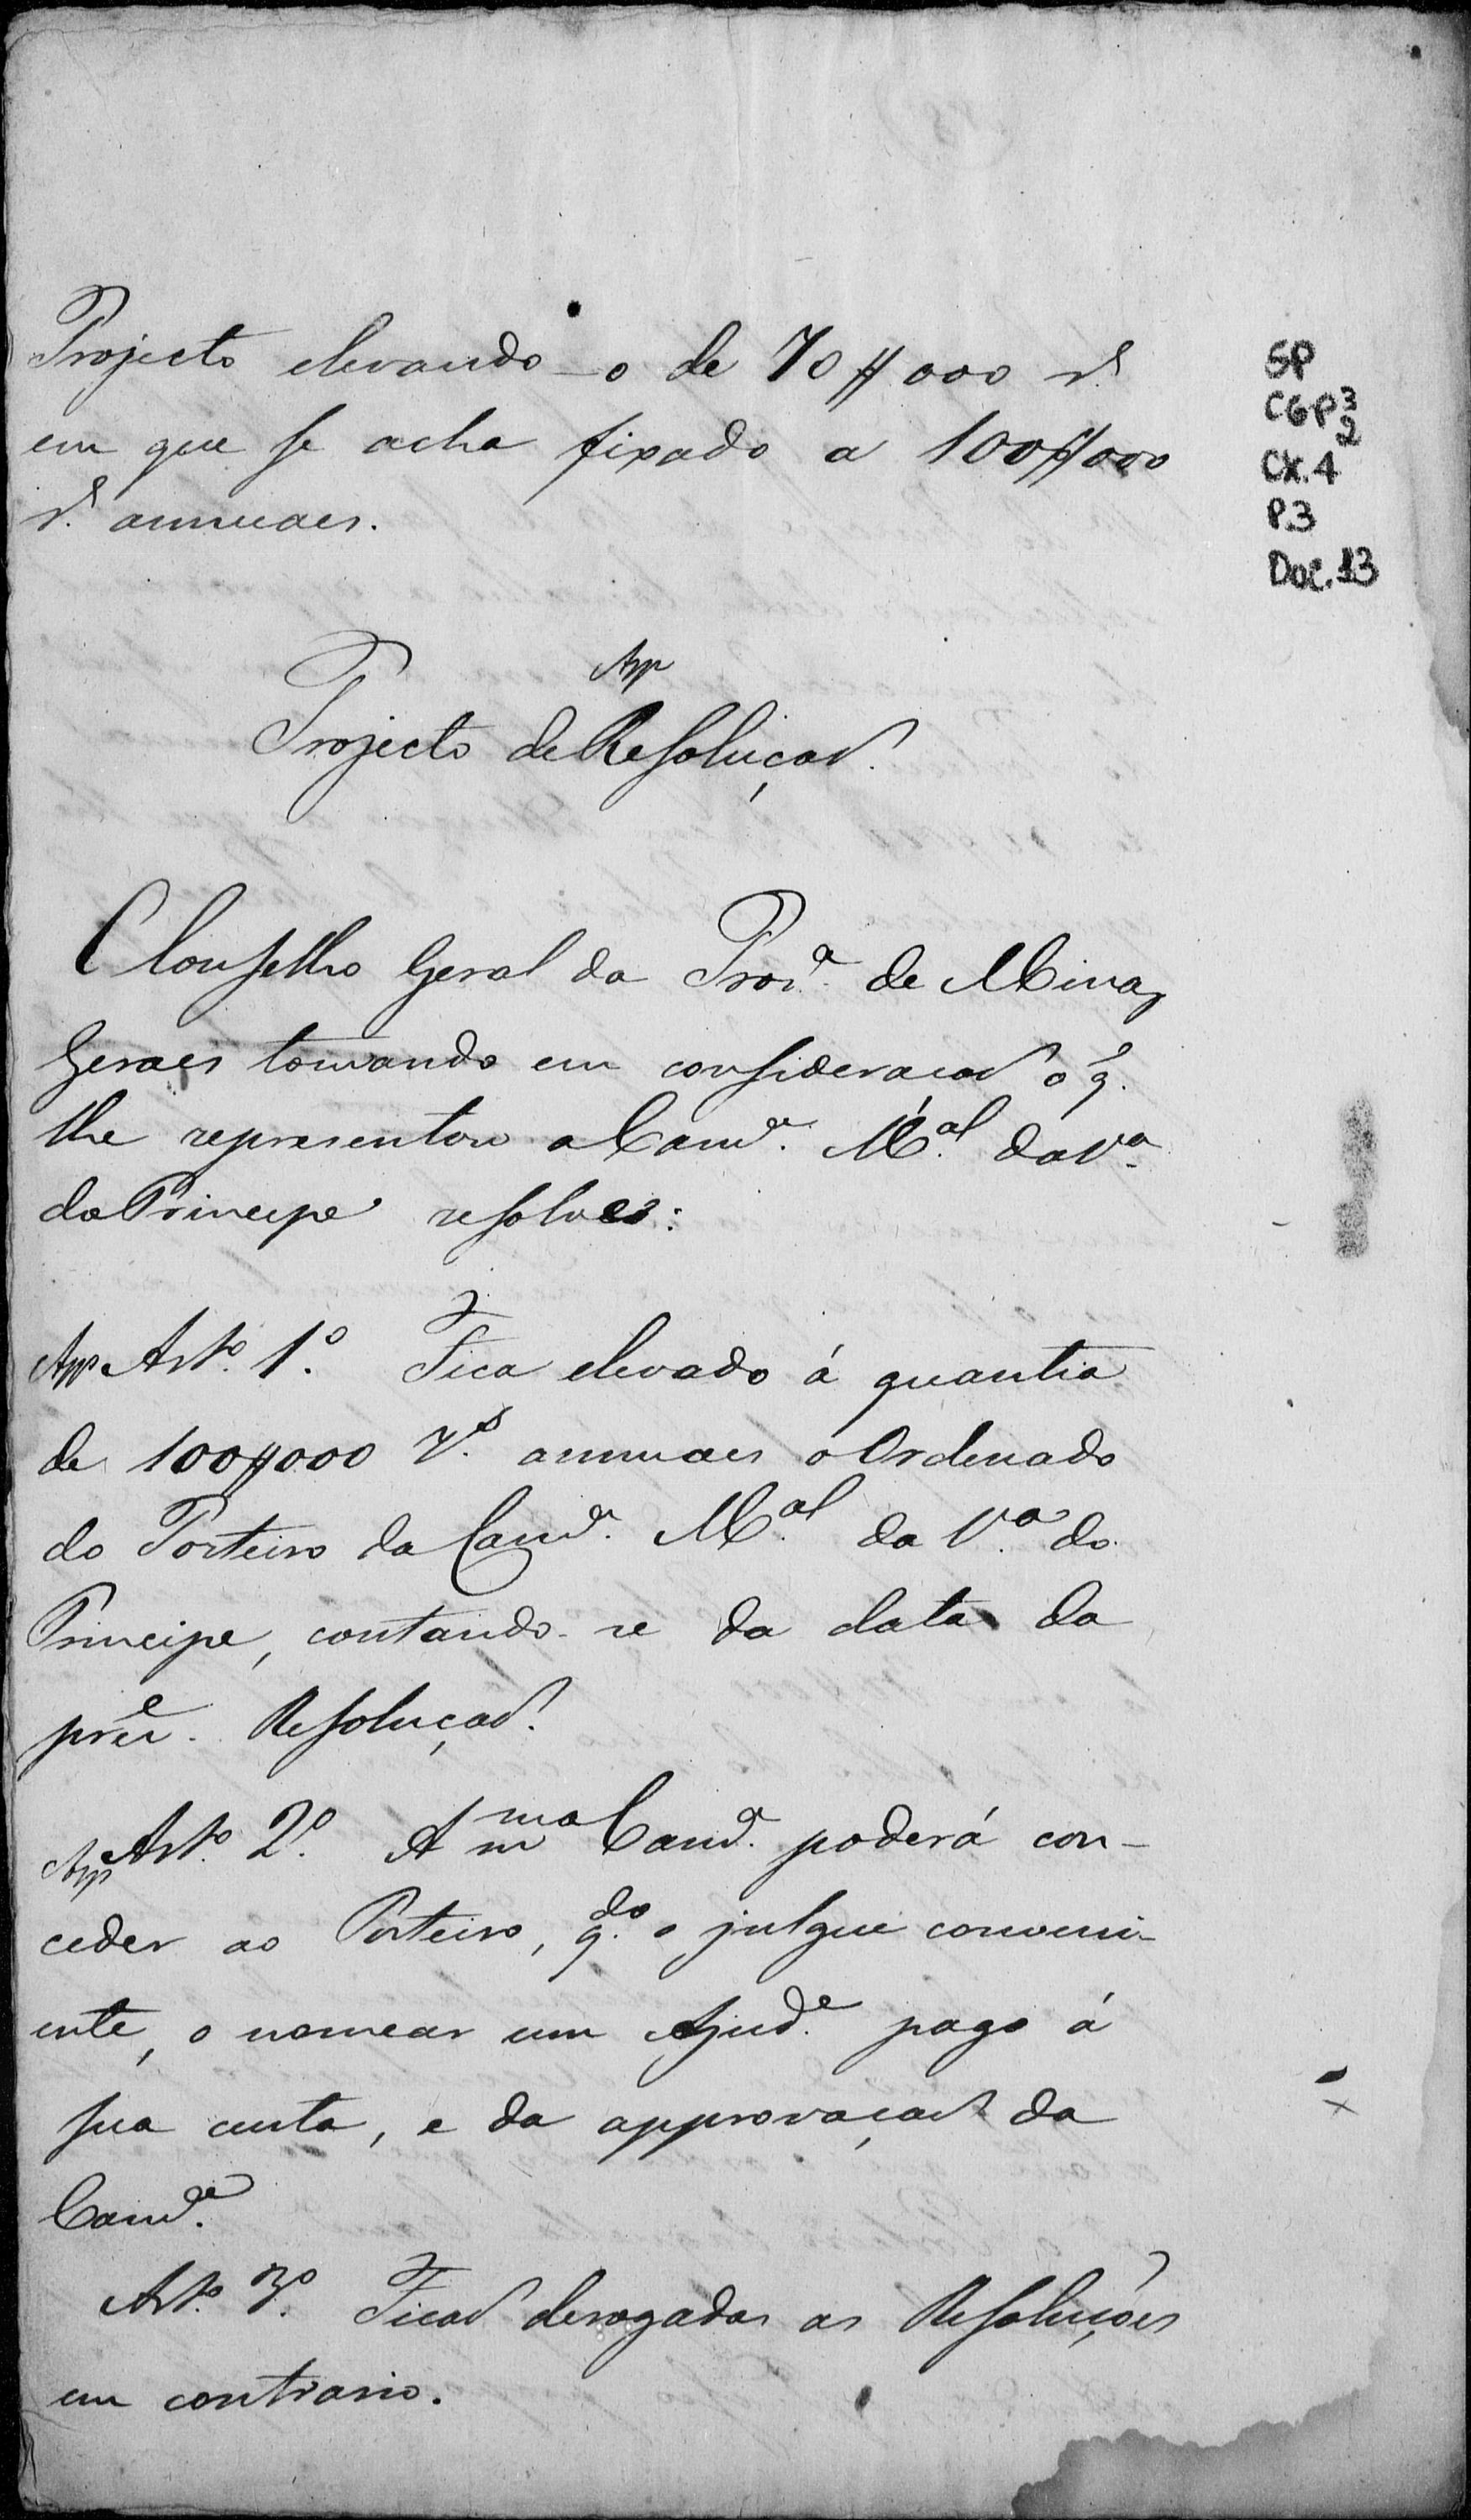 Projecto elevando-o de 70$000 r.s
em que se acha fixado a 100$000
r.s annuaes.
SP
CGP 3
2
CX.4
P.3
Doc.13
App
Projecto de Resoluçaõ.
O Conselho Geral da Prov.a de Minas
Geraes tomando em consideraçaõ o q.
lhe representou a Cam.a M.al da V.a
do Principe resolve:
App Art.o 1.o Fica elevado á quantia
de 100$000 r.s annuaes o Ordenado
do Porteiro da Cam.a M.al da V.a do
Principe, contando-se da data da
prez.e Resoluçaõ.
App Art.o 2.o A m.ma Cam.a poderá con-
ceder ao Porteiro, q.do o julgue conveni-
ente, o nomear um Ajud.e pago á
sua custa, e da approvaçaõ da
Cam.a
Art.o 3.o Ficaõ derogadas as Resoluções
em contrario.